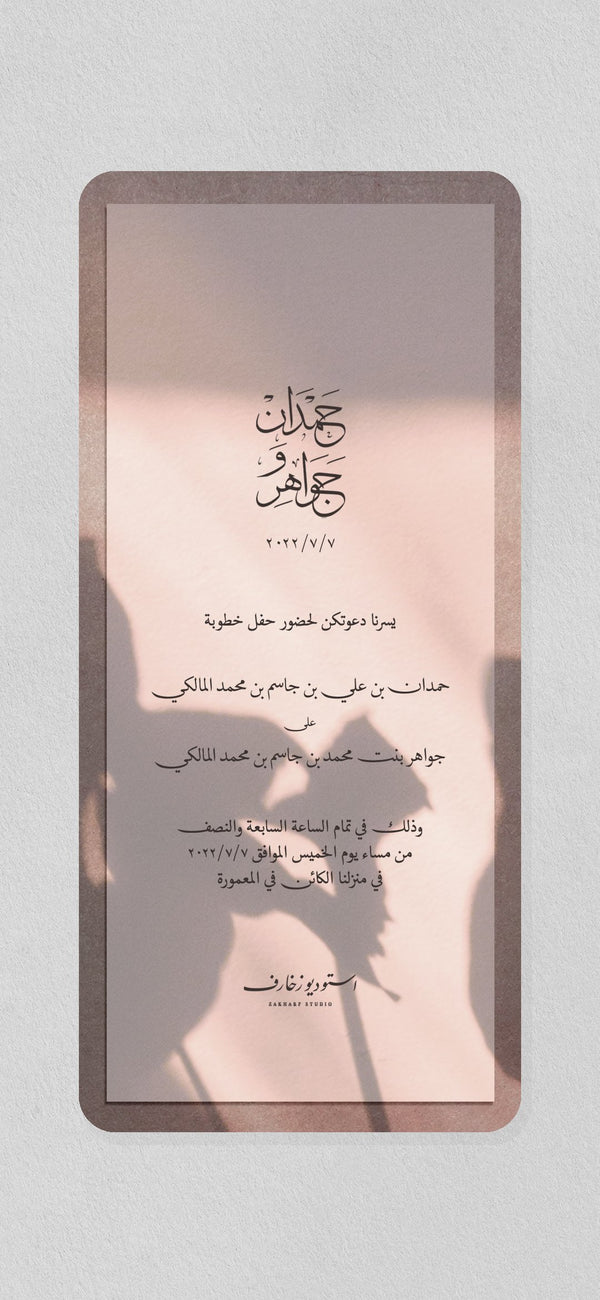 حَمْدَان
وَ
جَوَاهِر
٢٠٢٢/٧/٧
يسرنا دعوتكن لحضور حفل خطوبة
حمدان بن علي بن جاسم بن محمد المالكي
على
جواهر بنت محمد بن جاسم بن محمد المالكي
وذلك في تمام الساعة السابعة والنصف
من مساء يوم الخميس الموافق ٢٠٢٢/٧/٧
في منزلنا الكائن في المعمورة
استوديو زخارف
ZAKHARF STUDIO